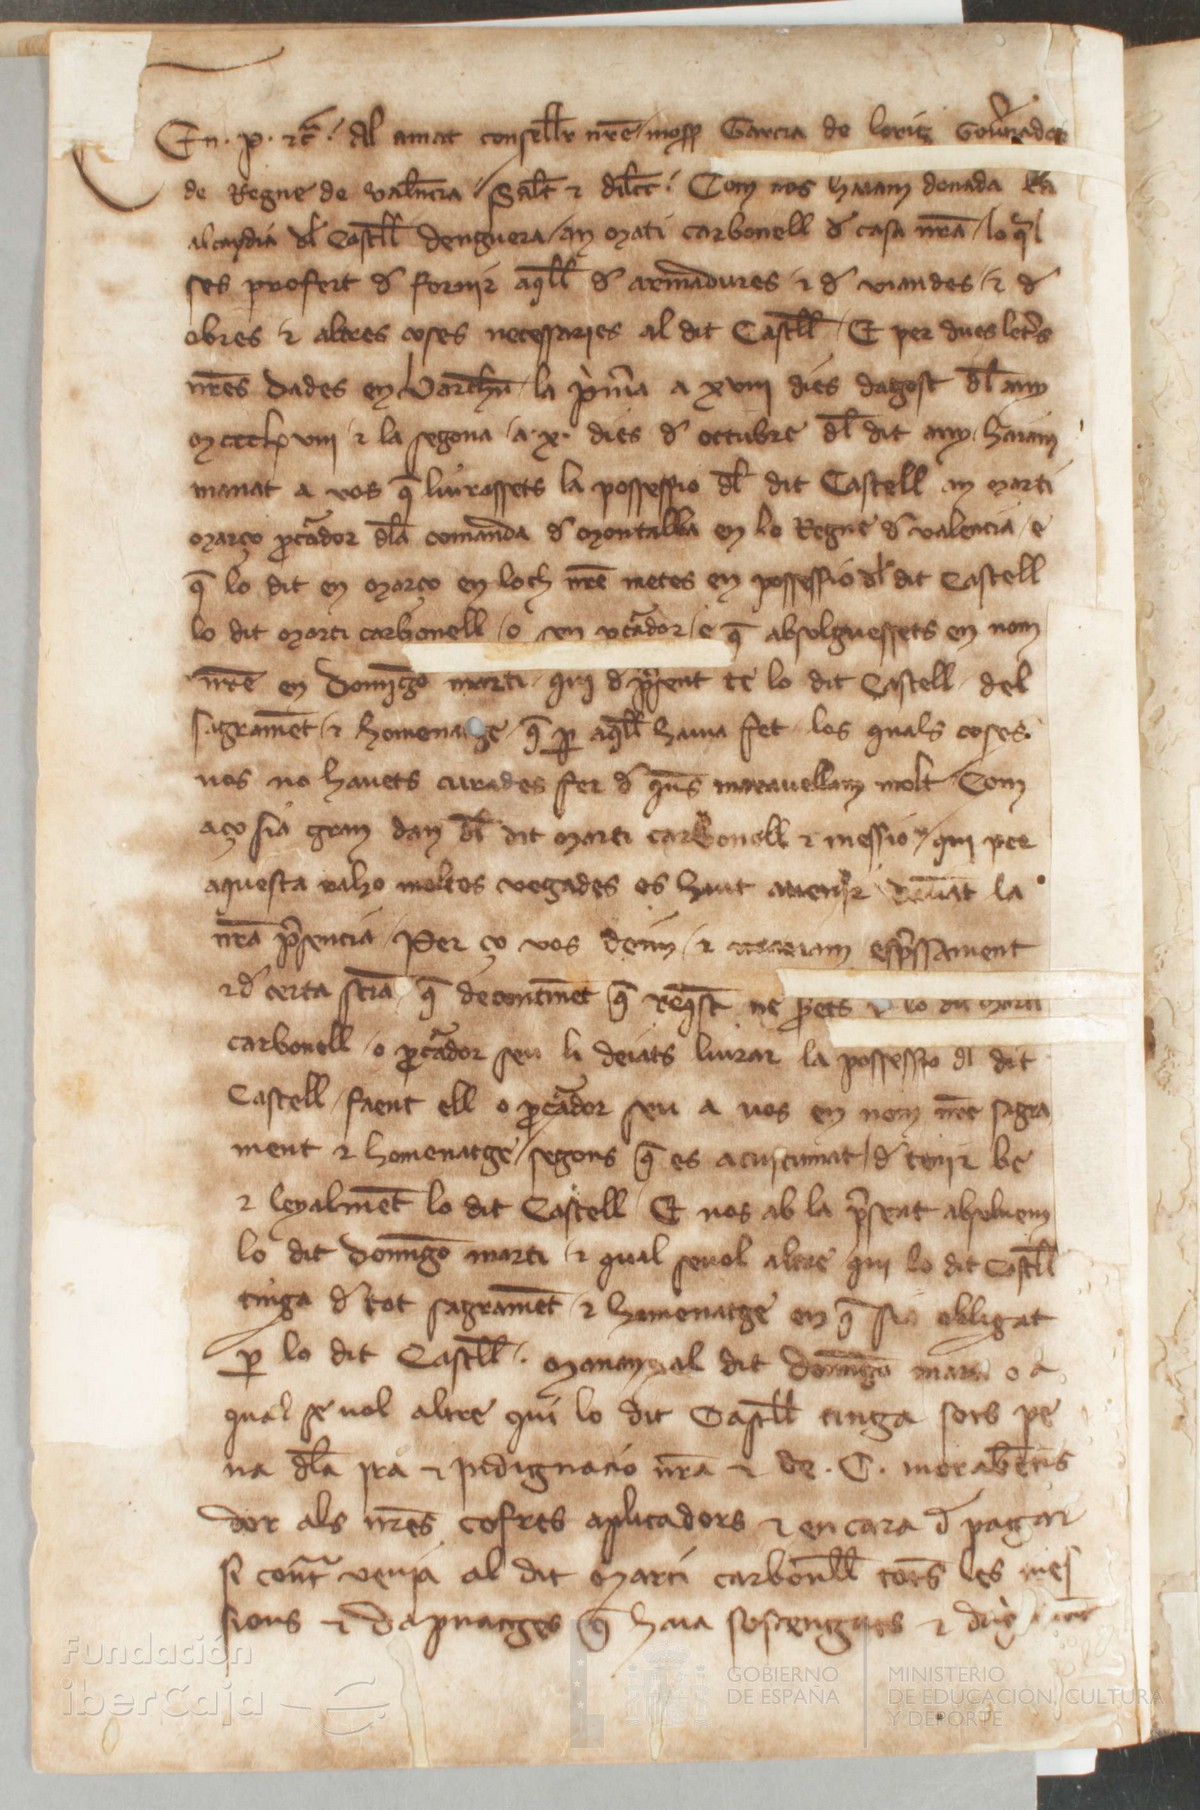 En. p. etc. Al amat conseller nre mossen Garcia de loriz Gouernador
de Regne de valencia Salt e dilecc. Com nos haiam donada la
alcaydia dl Castell denguera an Marti carbonell d casa nra lo ql
ses profert d fornir aqll d armadures e d viandes e d
obres e altres coses necessaries al dit Castell E per dues letres
nres dades en Barchna la prima a xviii dies dagost dl any
Mccclxviii e la segona a x. dies d octubre dl dit any haiam
manat a vos q liurassets la possessio dl dit Castell an Marti
março pcador dla comanda d Montalba en lo Regne d valencia e
q lo dit en março en loch nre metes en possessio dl dit Castell
lo dit Marti carbonell o son pcador e q absolguessets en nom
nre en Domingo marti qui d present te lo dit Castell del
sagrament e homenatge q p aqll hauia fet los quals coses
vos no hauets curades fer d quns marauellam molt Com
aço sia gran dan dl dit Marti carbonell e messio qui per
aquesta raho moltes vegades es haut a venir deuant la
nra presencia Per ço vos deim e manam espressament
e d certa sciencia q decontinent q request ne siats lo dit Marti
carbonell o pcador seu li deiats liurar la possessio dl dit
Castell faent ell o pcador seu a vos en nom nre sagra
ment e homenatge segons q es acustumat d tenir be
e leyalment lo dit Castell E nos ab la present absoluem
lo dit Domingo marti e qual seuol altre qui lo dit Castell
tinga d tot sagrament e homenatge en q sia obligat
p lo dit Castell. Manam al dit Domingo marti o a
qual se uol altre qui lo dit Castell tinga sots pe
na dla ira e indignacio nra e de .C. morabetins
dor als nres cofres aplicadors e encara d pagar
si contra venia al dit Marti carbonell totes les mes
sions e dapnatges q haia sostengudes e
Fundación
iberCaja
GOBIERNO
DE ESPAÑA
MINISTERIO
DE EDUCACIÓN, CULTURA
Y DEPORTE